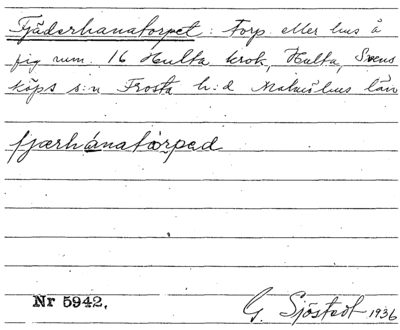 Fjäderhanatorpet: torp eller hus å
fig num. 16 Hulta krok, Hulta, Svens
köps s:n Frosta h:d Malmöhus län
fjærhánatårped
Nr 5942.
G. Sjöstedt 1936